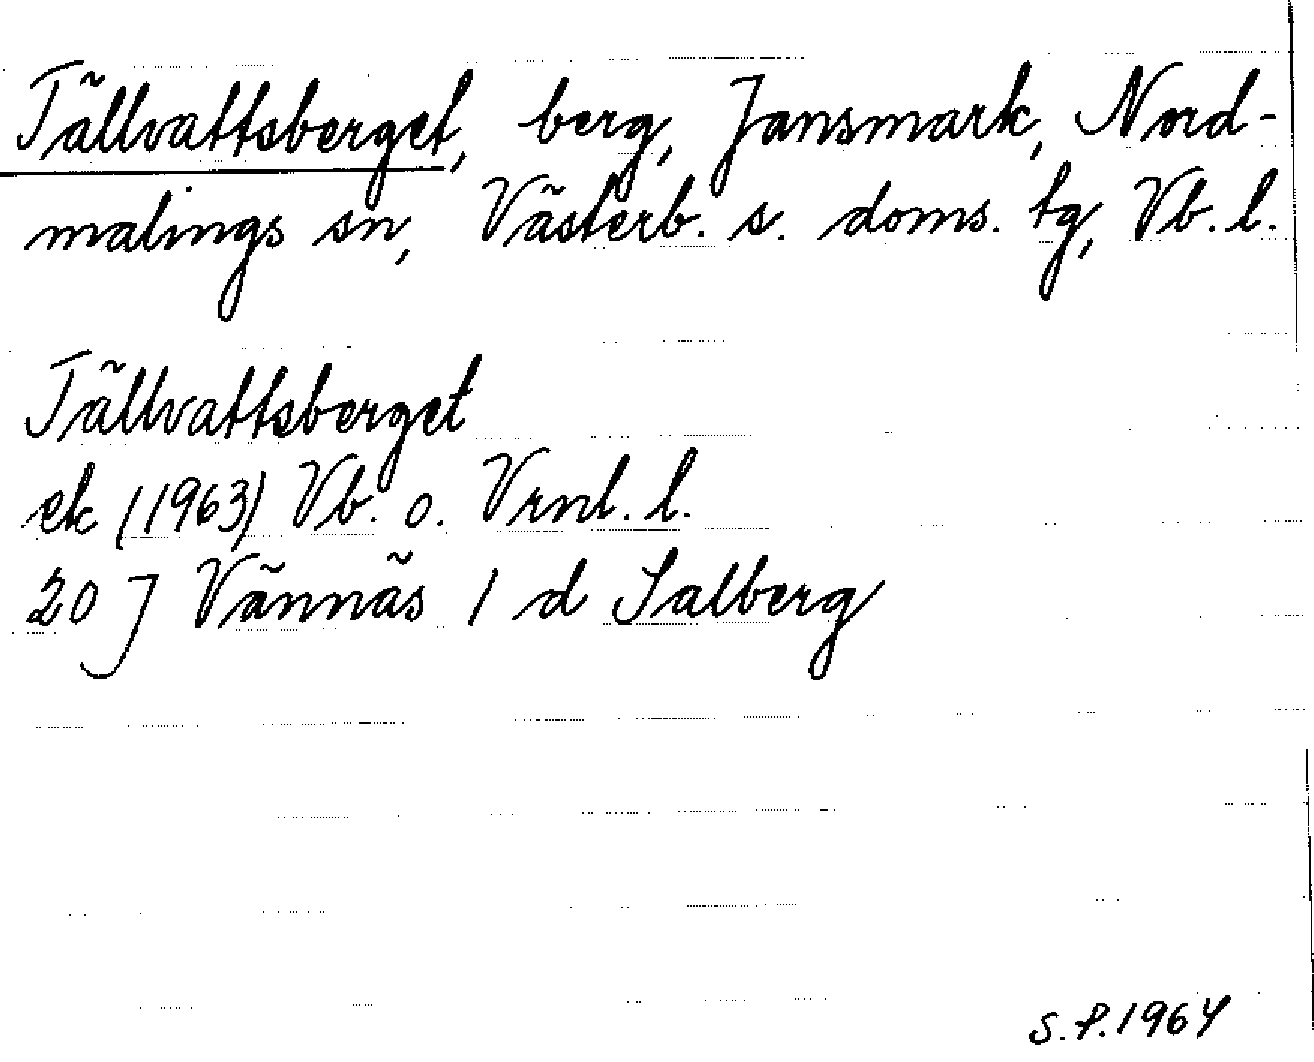 Tällvattsberget, berg, Jansmark, Nord-
malings sn, Västerb. s. doms. tg, Vb. l.
Tällvattsberget
ek (1963) Vb. o. Vrnl. l.
20 J Vännäs 1 d Salberg
S.P. 1964